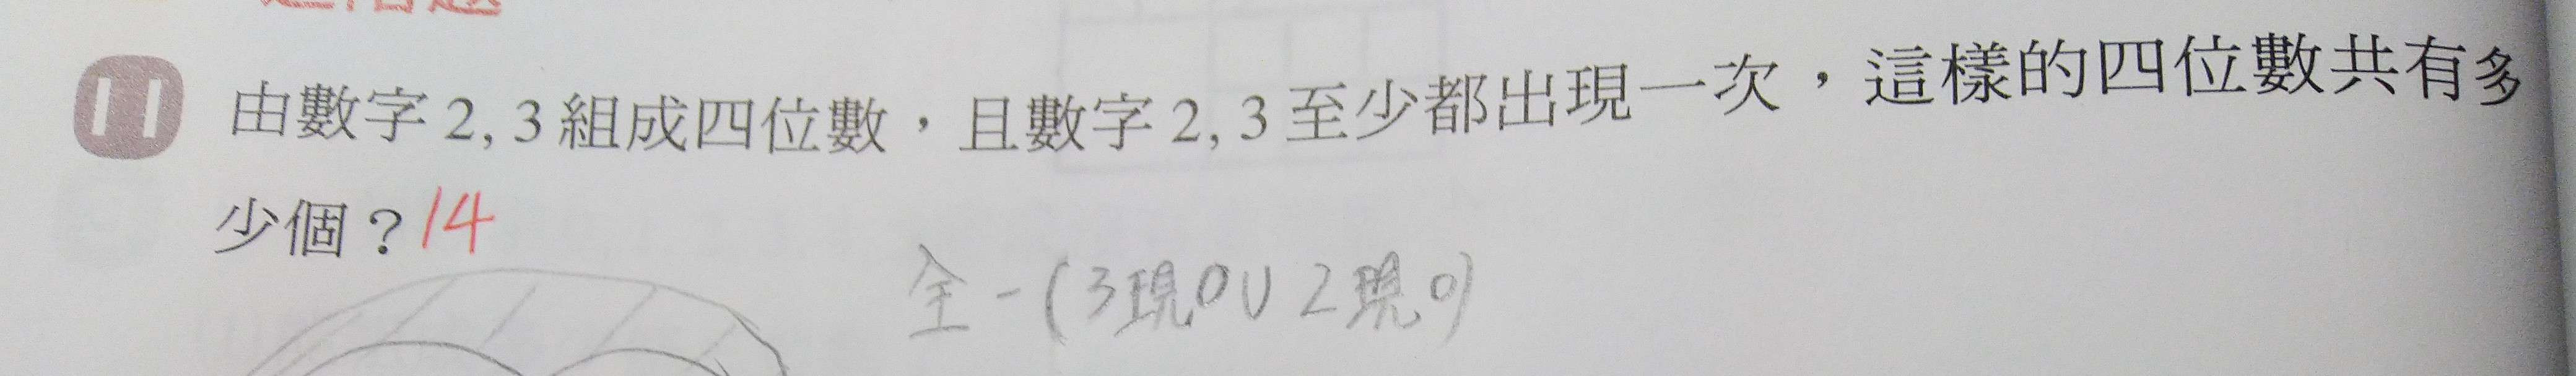 11 由數字2,3組成四位數，且數字2,3至少都出現一次，這樣的四位數共有多
少個？14
全-(3現0∪2現0)